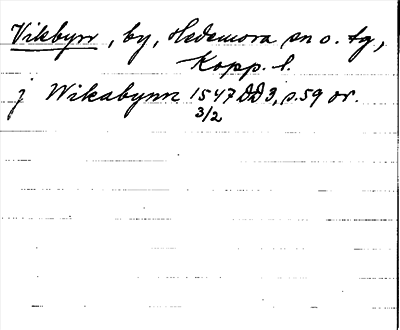 Vikbyn, by, Hedemora sn o. tg,
Kopp. l.
j Wikabynn 1547 DD3, s.59 or.
3/2